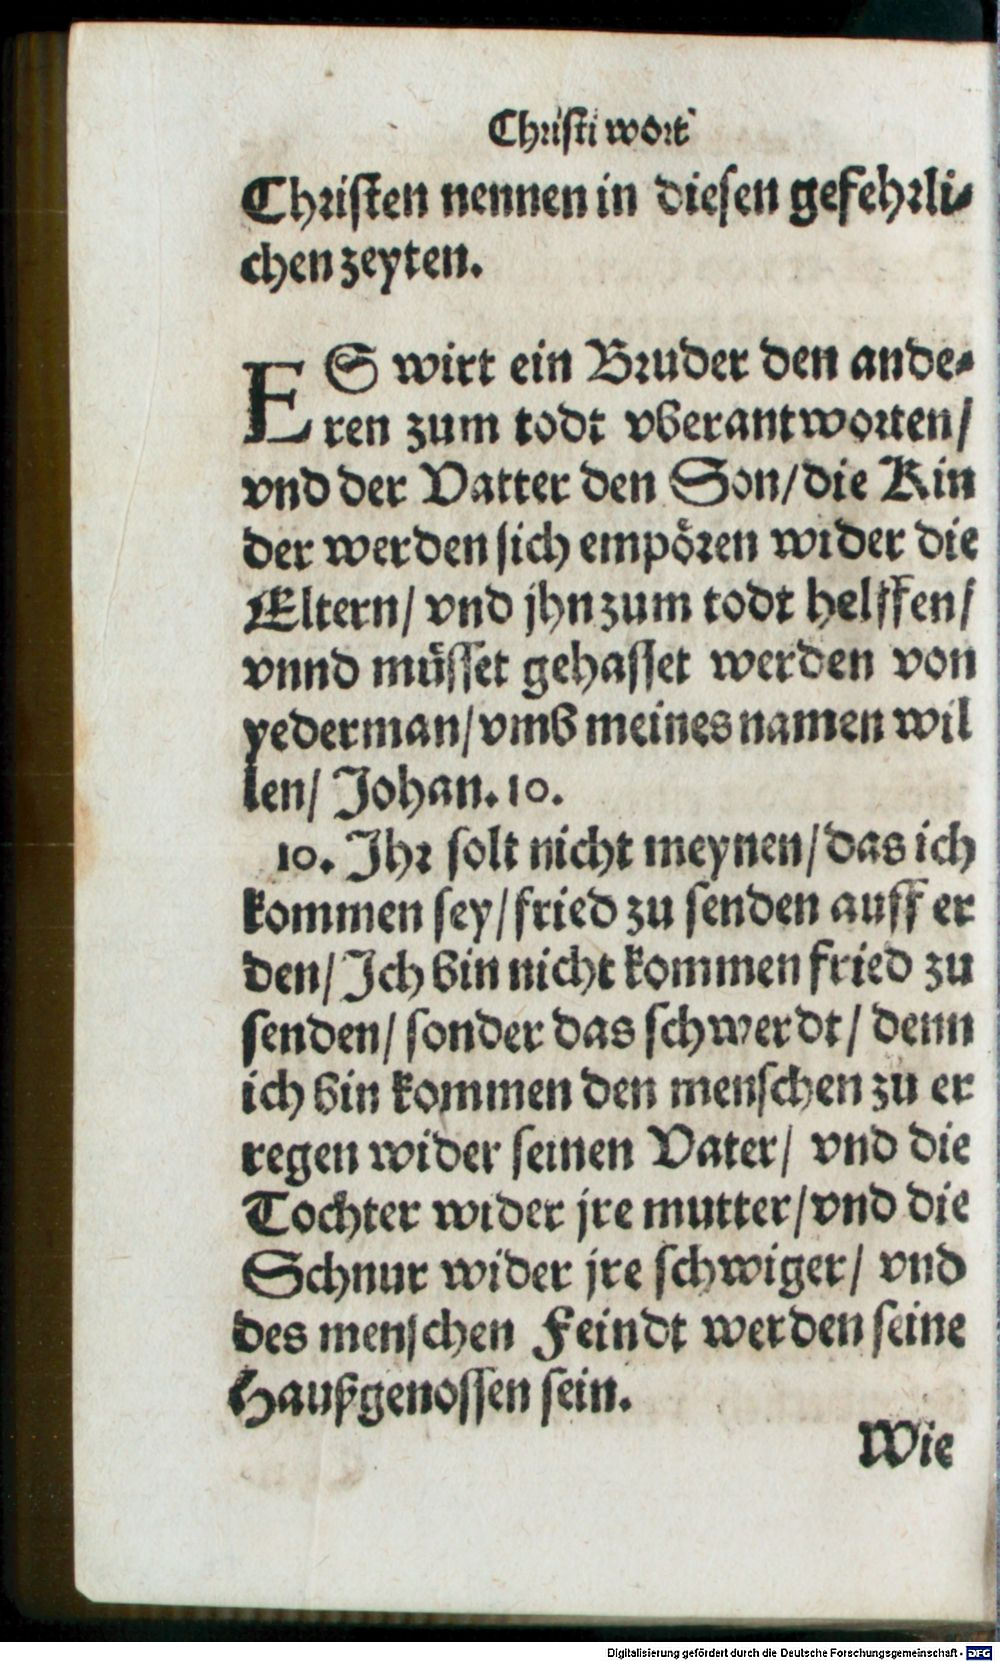 Christi wort
Christen nennen in diesen gefehrli-
chen zeyten.
ES wirt ein Bruder den ande-
ren zum todt vberantworten/
vnd der Vatter den Son/die Kin
der werden sich empören wider die
Eltern/ vnd jhn zum todt helffen/
vnnd müsset gehasset werden von
yederman/vmb meines namen wil
len/ Johan. 10.
10. Ihr solt nicht meynen/das ich
kommen sey/fried zu senden auff er
den/Ich bin nicht kommen fried zu
senden/sonder das schwerdt/ denn
ich bin kommen den menschen zu er
regen wider seinen Vater/ vnd die
Tochter wider jre mutter/vnd die
Schnur wider jre schwiger/ vnd
des menschen Feindt werden seine
Haußgenossen sein.
Wie
Digitalisierung gefördert durch die Deutsche Forschungsgemeinschaft - DFG